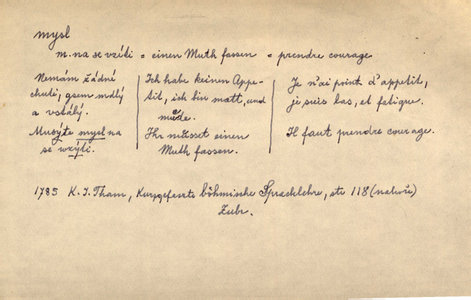 mysl
m. na se vzíti = einen Muth fassen = prendre courage.
Nemám žádné | Ich habe keinen Appe- | Je n'ai point d'appetit,
chuti, gsem mdlý | tit, ich bin matt, und | je suis las, et fatigue.
a vstálý. | müde.
Musýte mysl na | Ihr müsset einen | Il faut prendre courage.
se wzýti. | Muth fassen.
1785 K. I. Tham, Kurzgefaszte böhmische Sprachlehre, str 118
Zubr.